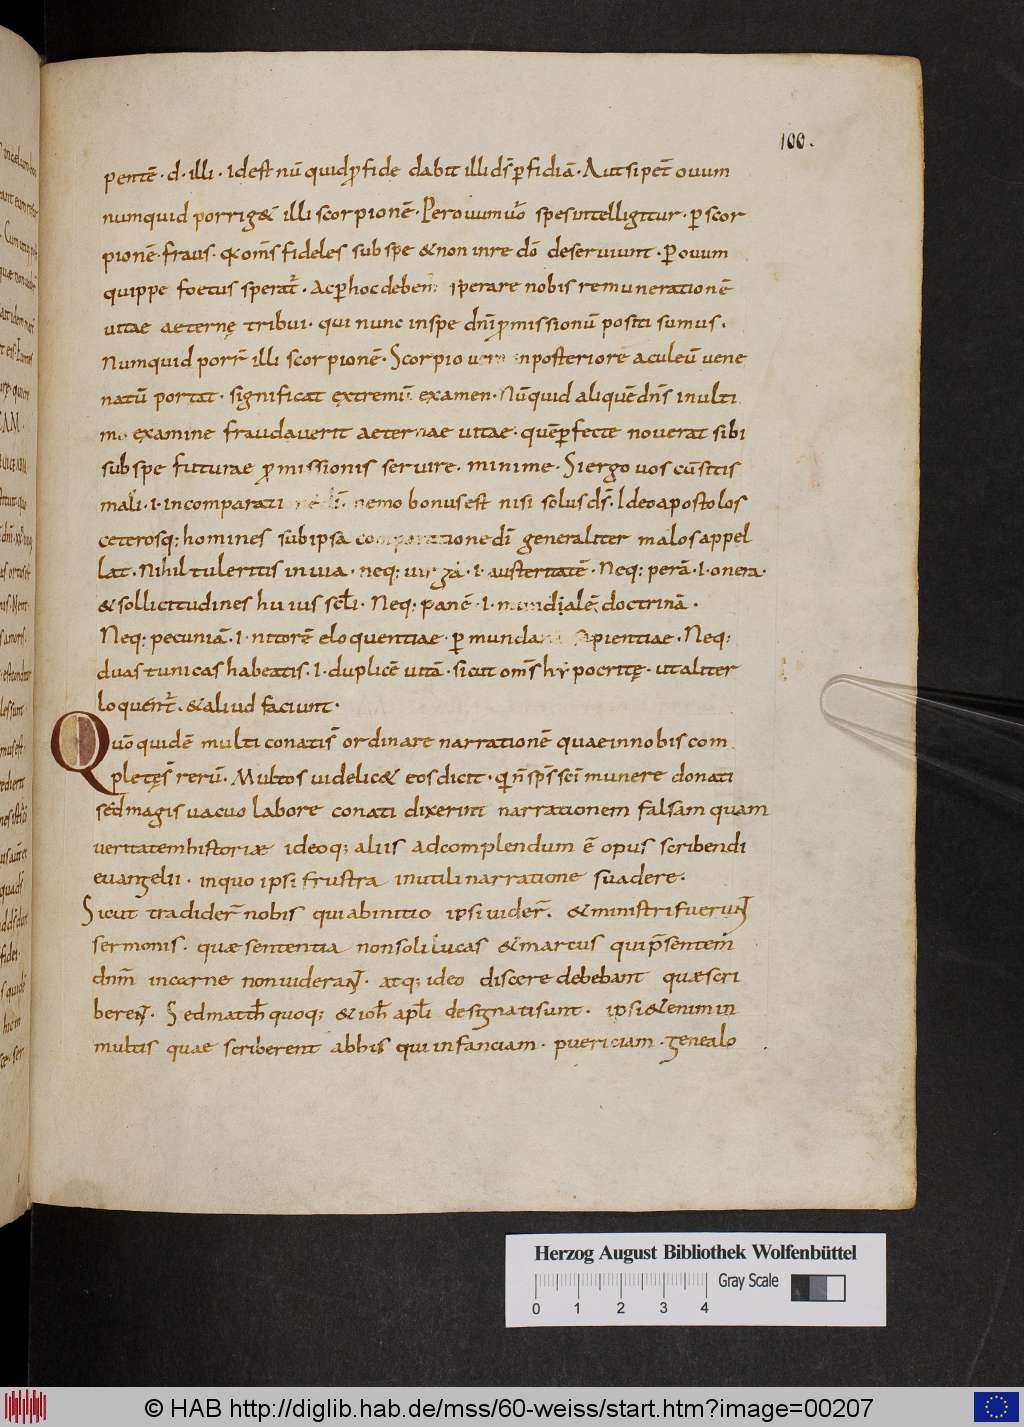 100.
pentē · d · illi · Idest nū quid ꝓfide dabit illi ds̄ ꝑfidiā · Aut si pet̄ ovum
numquid porrig& illi scorpionē · Per ovum v̄o spes intelligitur · ꝑ scor
pionē · fraus · om̄s fideles sub spe & non in re dō deserviunt · ꝑ ovum
quippe foetus sperat᷑ · Ac ꝑ hoc deben perare nobis remunerationē
vitae aeternę tribui · qui nunc in spe dn̄i ꝓmissionū positi sumus ·
Numquid porr̄ illi scorpionē · Scorpio vero in posteriore aculeū vene
natū portat · significat extremū examen · Nūquid aliquē dn̄s in ulti
mo examine fraudaverit aeternae vitae · quē ꝑfecte noverat sibi
sub spe futurae ꝓmissionis servire · minime · Si ergo vos cū sitis
mali · i · in comparati di · nemo bonus est nisi solus ds̄ · Ideo apostolos
ceterosq; homines sub ipsa comparatione dī generaliter malos appel
lat · Nihil tuleritis in via · neq; virgā · i · austeritatē · Neq; perā · i · onera ·
& sollicitudines huius scl̄i · Neq; panē · i · mundialē doctrinā ·
Neq; pecuniā · i · nitorē eloquentiae · ꝑ mundan sapientiae · Neq;
duas tunicas habeatis · i · duplicē vitā · sicut om̄s hypocritę · ut aliter
loquent᷑ · & aliud faciunt ·
Quō quidē multi conati s̄ ordinare narrationē quae in nobis com
pletę s̄ rerū · Multos videlic& eos dicit · qui n̄ sp̄s sc̄i munere donati
sed magis vacuo labore conati dixerint narrationem falsam quam
veritatem historiæ ideoq; aliis ad complendum ē opus scribendi
evangelii · in quo ipsi frustra inutili narratione suadere ·
Sicut tradider̄ nobis qui ab initio ipsi vider̄ · & ministri fuerunt
sermonis · quæ sententia non soli lucas & marcus qui p̄sentem
dnm̄ in carne non viderant · atq; ideo discere debebant quæ scri
berent · Sed math̄ quoq; & ioh̄ apl̄i designati sunt · ipsi & enim in
multis quae scriberent ab his qui infanciam · puericiam · genealo
Herzog August Bibliothek Wolfenbüttel
Gray Scale
0 1 2 3 4
© HAB http://diglib.hab.de/mss/60-weiss/start.htm?image=00207